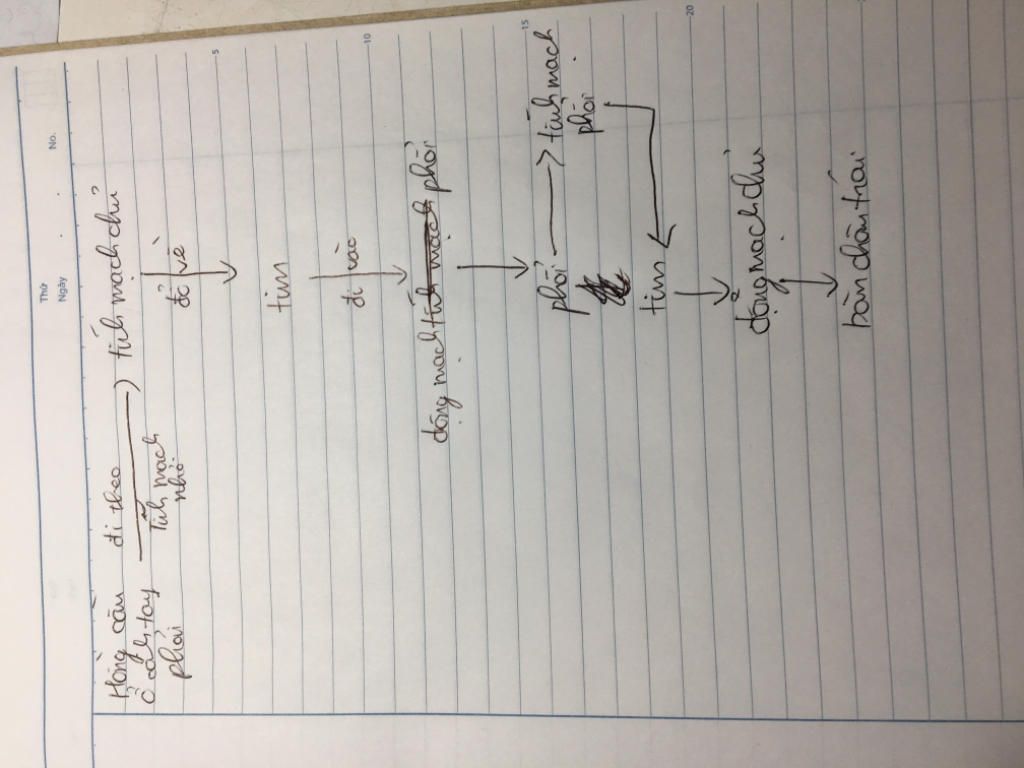 Thứ
Ngày
No.
Hồng cầu đi theo
ở cánh tay tĩnh mạch chủ
phải tĩnh mạch
nhỏ
đổ về
5
tim
đi vào
10
động mạch tĩnh mạch phổi
15
phổi tĩnh mạch
phổi
tim
20
động mạch chủ
bàn chân trái